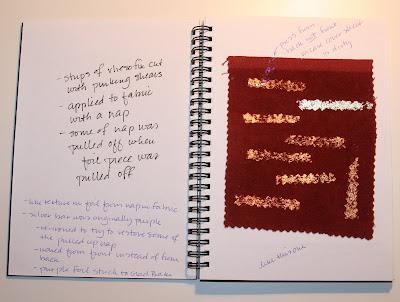 - strips of rhesofix cut
with pinking shears
- applied to fabric
with a nap
- some of nap was
pulled off when
foil piece was
pulled off
- like texture in foil from nap in fabric
- silver bar was originally purple
- re-ironed to try to restore some of
the pulled up nap
- ironed from front instead of from
back
- purple foil stuck to
press from
back not front
in case cover sheet
is dirty
like this one